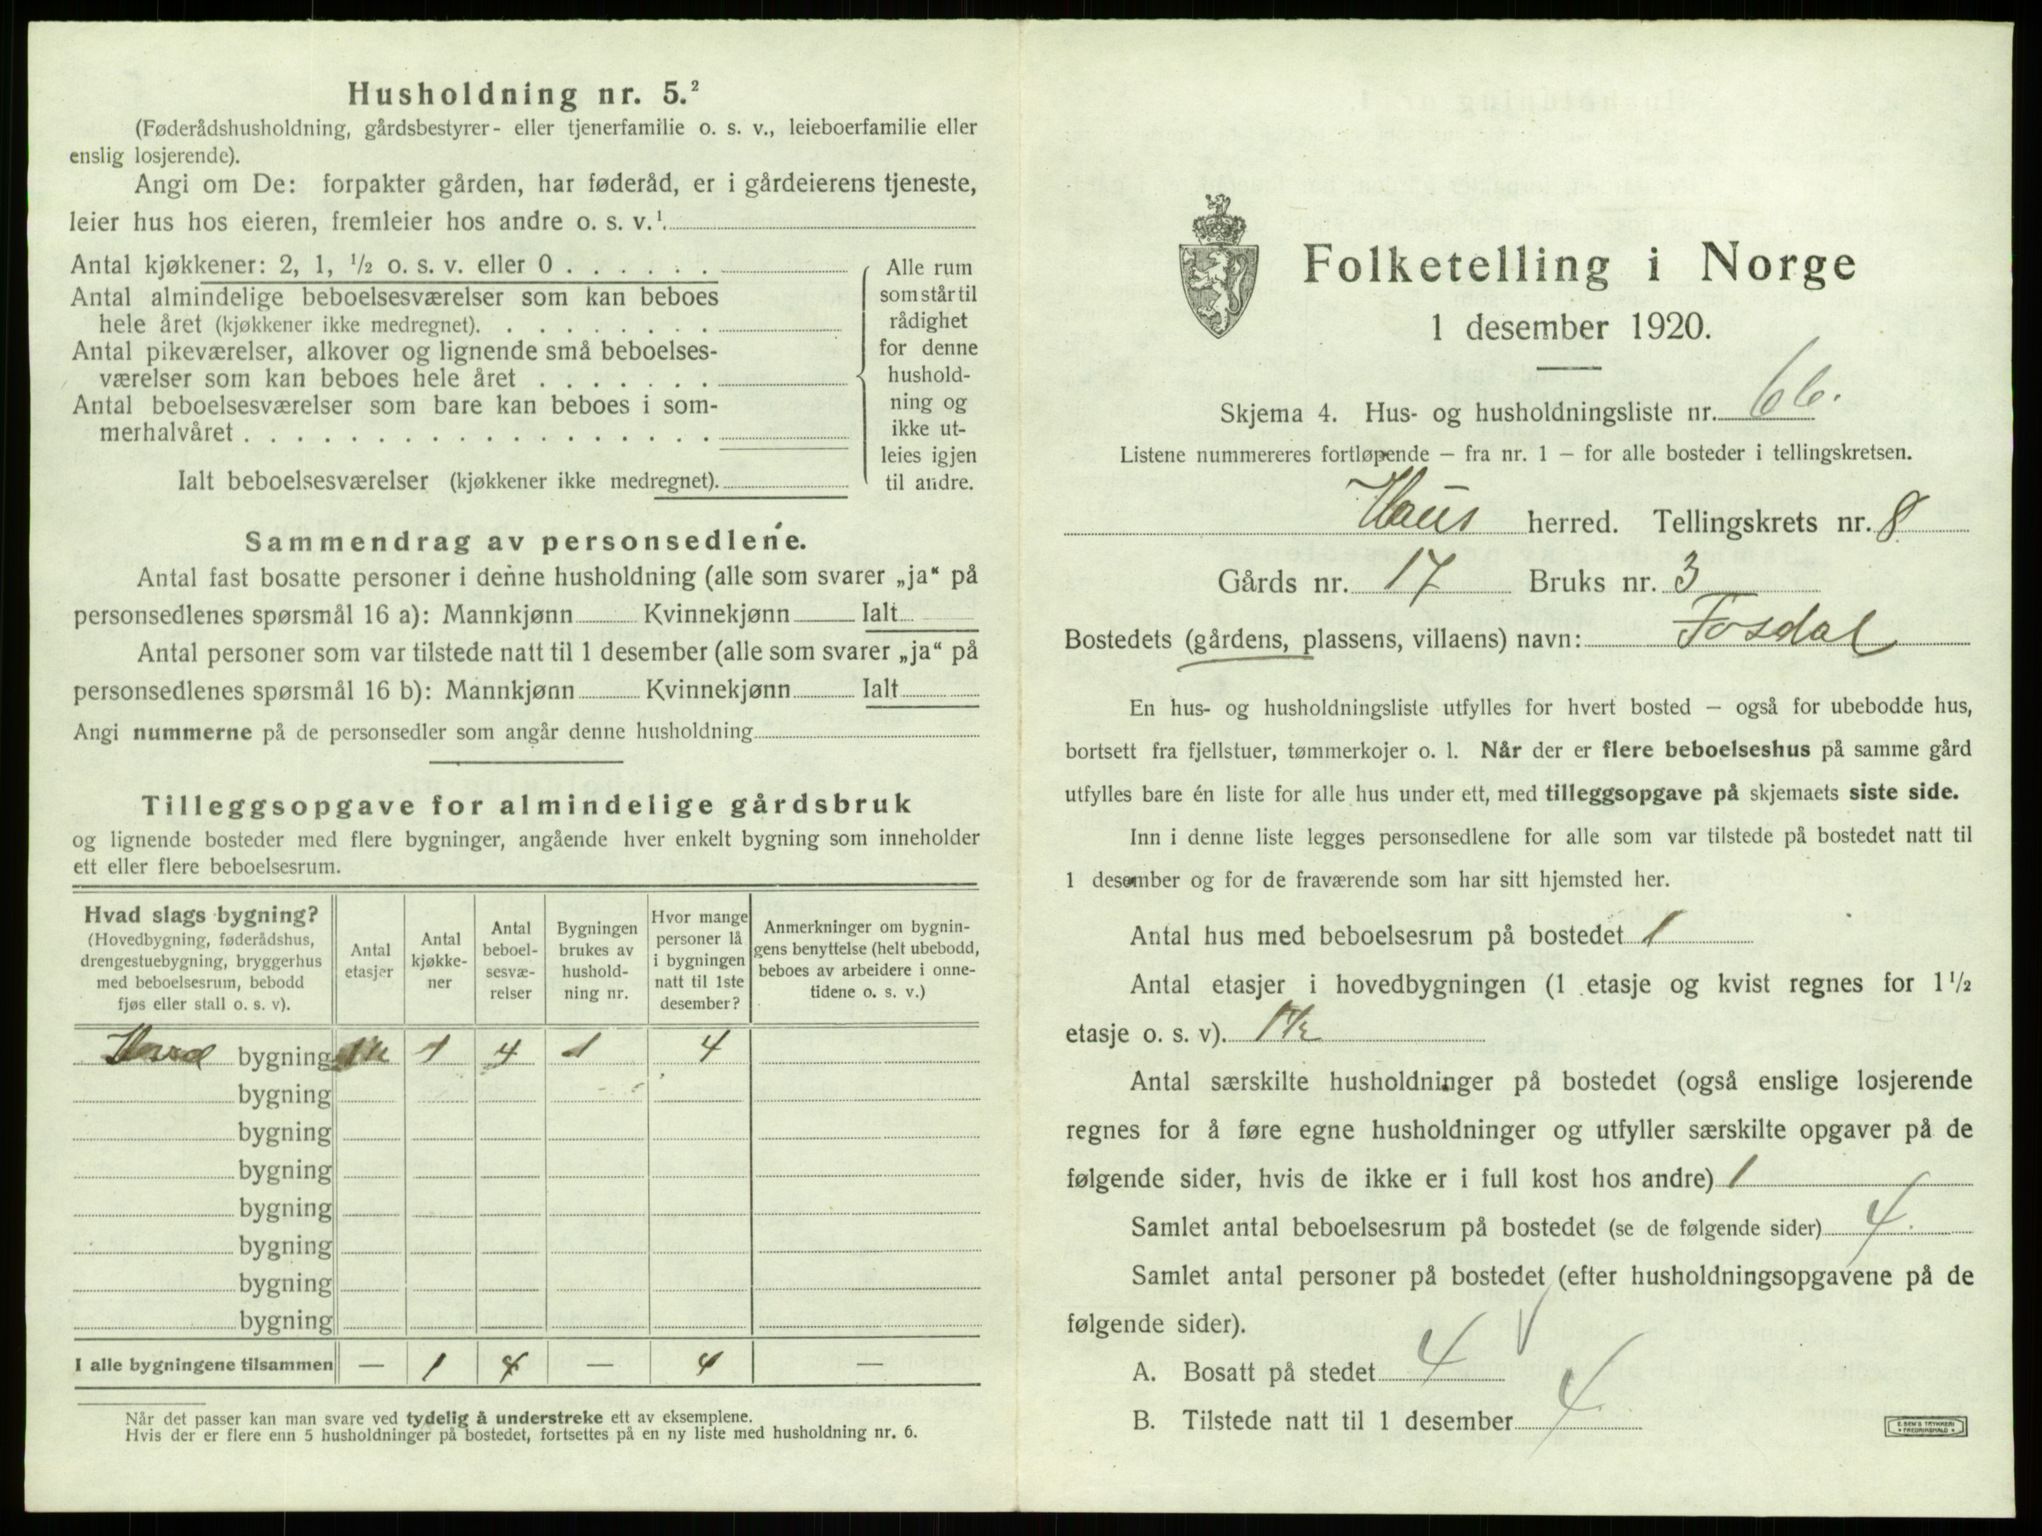 Husholdning nr. 5.²
(Føderådshusholdning, gårdsbestyrer- eller tjenerfamilie o. s. v., leieboerfamilie eller
enslig losjerende).
Angi om De: forpakter gården, har føderåd, er i gårdeierens tjeneste,
leier hus hos eieren, fremleier hos andre o. s. v.¹.
Antal kjøkkener: 2, 1, ½ o. s. v. eller 0 . . . . . .
Antal almindelige beboelsesværelser som kan beboes
hele året (kjøkkener ikke medregnet). . . . . . . . .
Antal pikeværelser, alkover og lignende små beboelses-
værelser som kan beboes hele året . . . . . . .
Antal beboelsesværelser som bare kan beboes i som-
merhalvåret . . . . . . . . . . . . . . . . . .
Ialt beboelsesværelser (kjøkkener ikke medregnet).
Alle rum
som står til
rådighet
for denne
hushold-
ning og
ikke ut-
leies igjen
til andre.
Sammendrag av personsedlene.
Antal fast bosatte personer i denne husholdning (alle som svarer „ja“ på
personsedlenes spørsmål 16 a): Mannkjønn Kvinnekjønn Ialt
Antal personer som var tilstede natt til 1 desember (alle som svarer „ja“ på
personsedlenes spørsmål 16 b): Mannkjønn Kvinnekjønn Ialt
Angi nummerne på de personsedler som angår denne husholdning
Tilleggsopgave for almindelige gårdsbruk
og lignende bosteder med flere bygninger, angående hver enkelt bygning som inneholder
ett eller flere beboelsesrum.
Hvad slags bygning?
(Hovedbygning, føderådshus,
drengestuebygning, bryggerhus
med beboelsesrum, bebodd
fjøs eller stall o. s. v).
Antal
etasjer
Antal
kjøkke-
ner
Antal
beboel-
sesvæ-
relser
Bygningen
brukes av
hushold-
ning nr.
Hvor mange
personer lå
i bygningen
natt til 1ste
desember?
Anmerkninger om bygnin-
gens benyttelse (helt ubebodd,
beboes av arbeidere i onne-
tidene o. s. v.)
bygning 1½ 1 4 1 4
bygning
bygning
bygning
bygning
bygning
bygning
bygning
I alle bygningene tilsammen — 1 4 — 4 —
Når det passer kan man svare ved tydelig å understreke ett av eksemplene.
Hvis der er flere enn 5 husholdninger på bostedet, fortsettes på en ny liste med husholdning nr. 6.
Folketelling i Norge
1 desember 1920.
Skjema 4. Hus- og husholdningsliste nr. 66.
Listene nummereres fortløpende – fra nr. 1 – for alle bosteder i tellingskretsen.
Haus herred. Tellingskrets nr. 8
Gårds nr. 17 Bruks nr. 3
Bostedets (gårdens, plassens, villaens) navn: Fosdal
En hus- og husholdningsliste utfylles for hvert bosted – også for ubebodde hus,
bortsett fra fjellstuer, tømmerkojer o. l. Når der er flere beboelseshus på samme gård
utfylles bare én liste for alle hus under ett, med tilleggsopgave på skjemaets siste side.
Inn i denne liste legges personsedlene for alle som var tilstede på bostedet natt til
1 desember og for de fraværende som har sitt hjemsted her.
Antal hus med beboelsesrum på bostedet 1
Antal etasjer i hovedbygningen (1 etasje og kvist regnes for 1½
etasje o. s. v). 1½
Antal særskilte husholdninger på bostedet (også enslige losjerende
regnes for å føre egne husholdninger og utfyller særskilte opgaver på de
følgende sider, hvis de ikke er i full kost hos andre) 1
Samlet antal beboelsesrum på bostedet (se de følgende sider) 4
Samlet antal personer på bostedet (efter husholdningsopgavene på de
følgende sider).
A. Bosatt på stedet 4
B. Tilstede natt til 1 desember 4